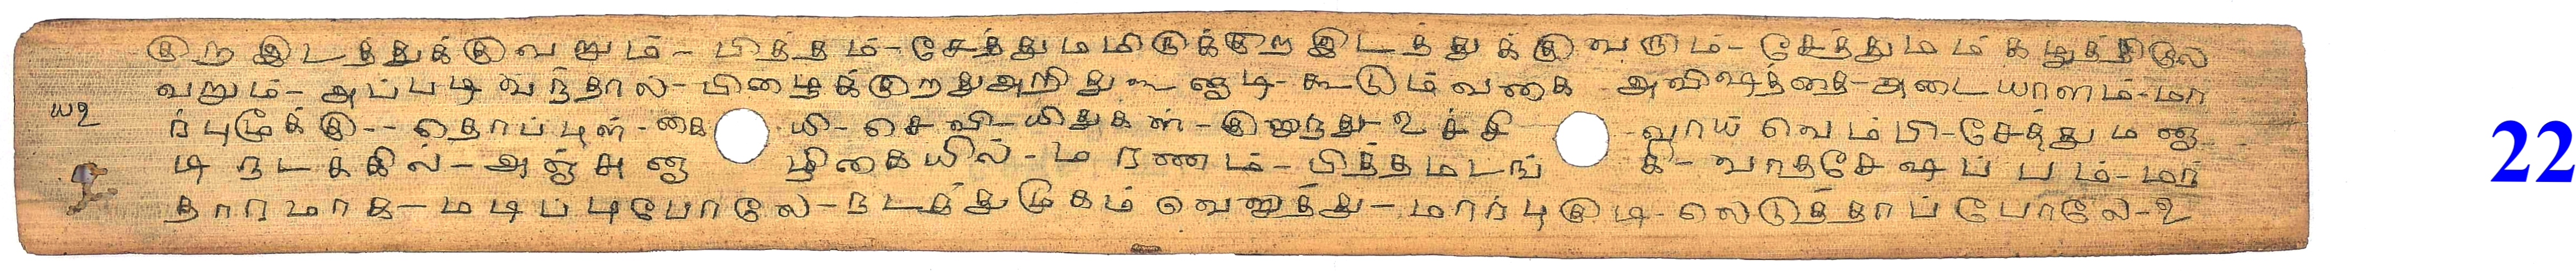 குற இடத்துக்கு வறும் - பித்தம் - சேத்துமமிருக்குற இடத்துக்கு வரும் - சேத்துமம் கழுத்திலே
வறும் - அப்படி வந்தால் - பிழைக்குறது அறிது கூறுடி - கூடும் வகை அவிஷத்தை - அடையாளம் - மா
ய௨ ர்புமூக்கு - - தொப்புள் - கை யி - செவி - யிதுகள் - குளுந்து - உச்சி வாய் வெம்பி - சேத்தும னு
டி நடக்கில் - அஞ்சு னா ழிகையில் - மரணம் - பித்தமடங் கி - வாதசேஷப்பம் - மந்
தாரமாக - மடிப்பு போலே - நடத்து முகம் வெளுத்து - மார்பு குடி - லெடுத்தாப் போலே - உ
22